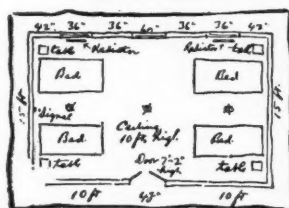 42" 36" 36" 60" 36" 36" 42"
table Radiator Radiator table
Bed Bed
15 ft 15 ft
Signal
Ceiling
10 ft. high.
Bed Bed
Door 7'-2"
high
table table
10 ft 48" 10 ft